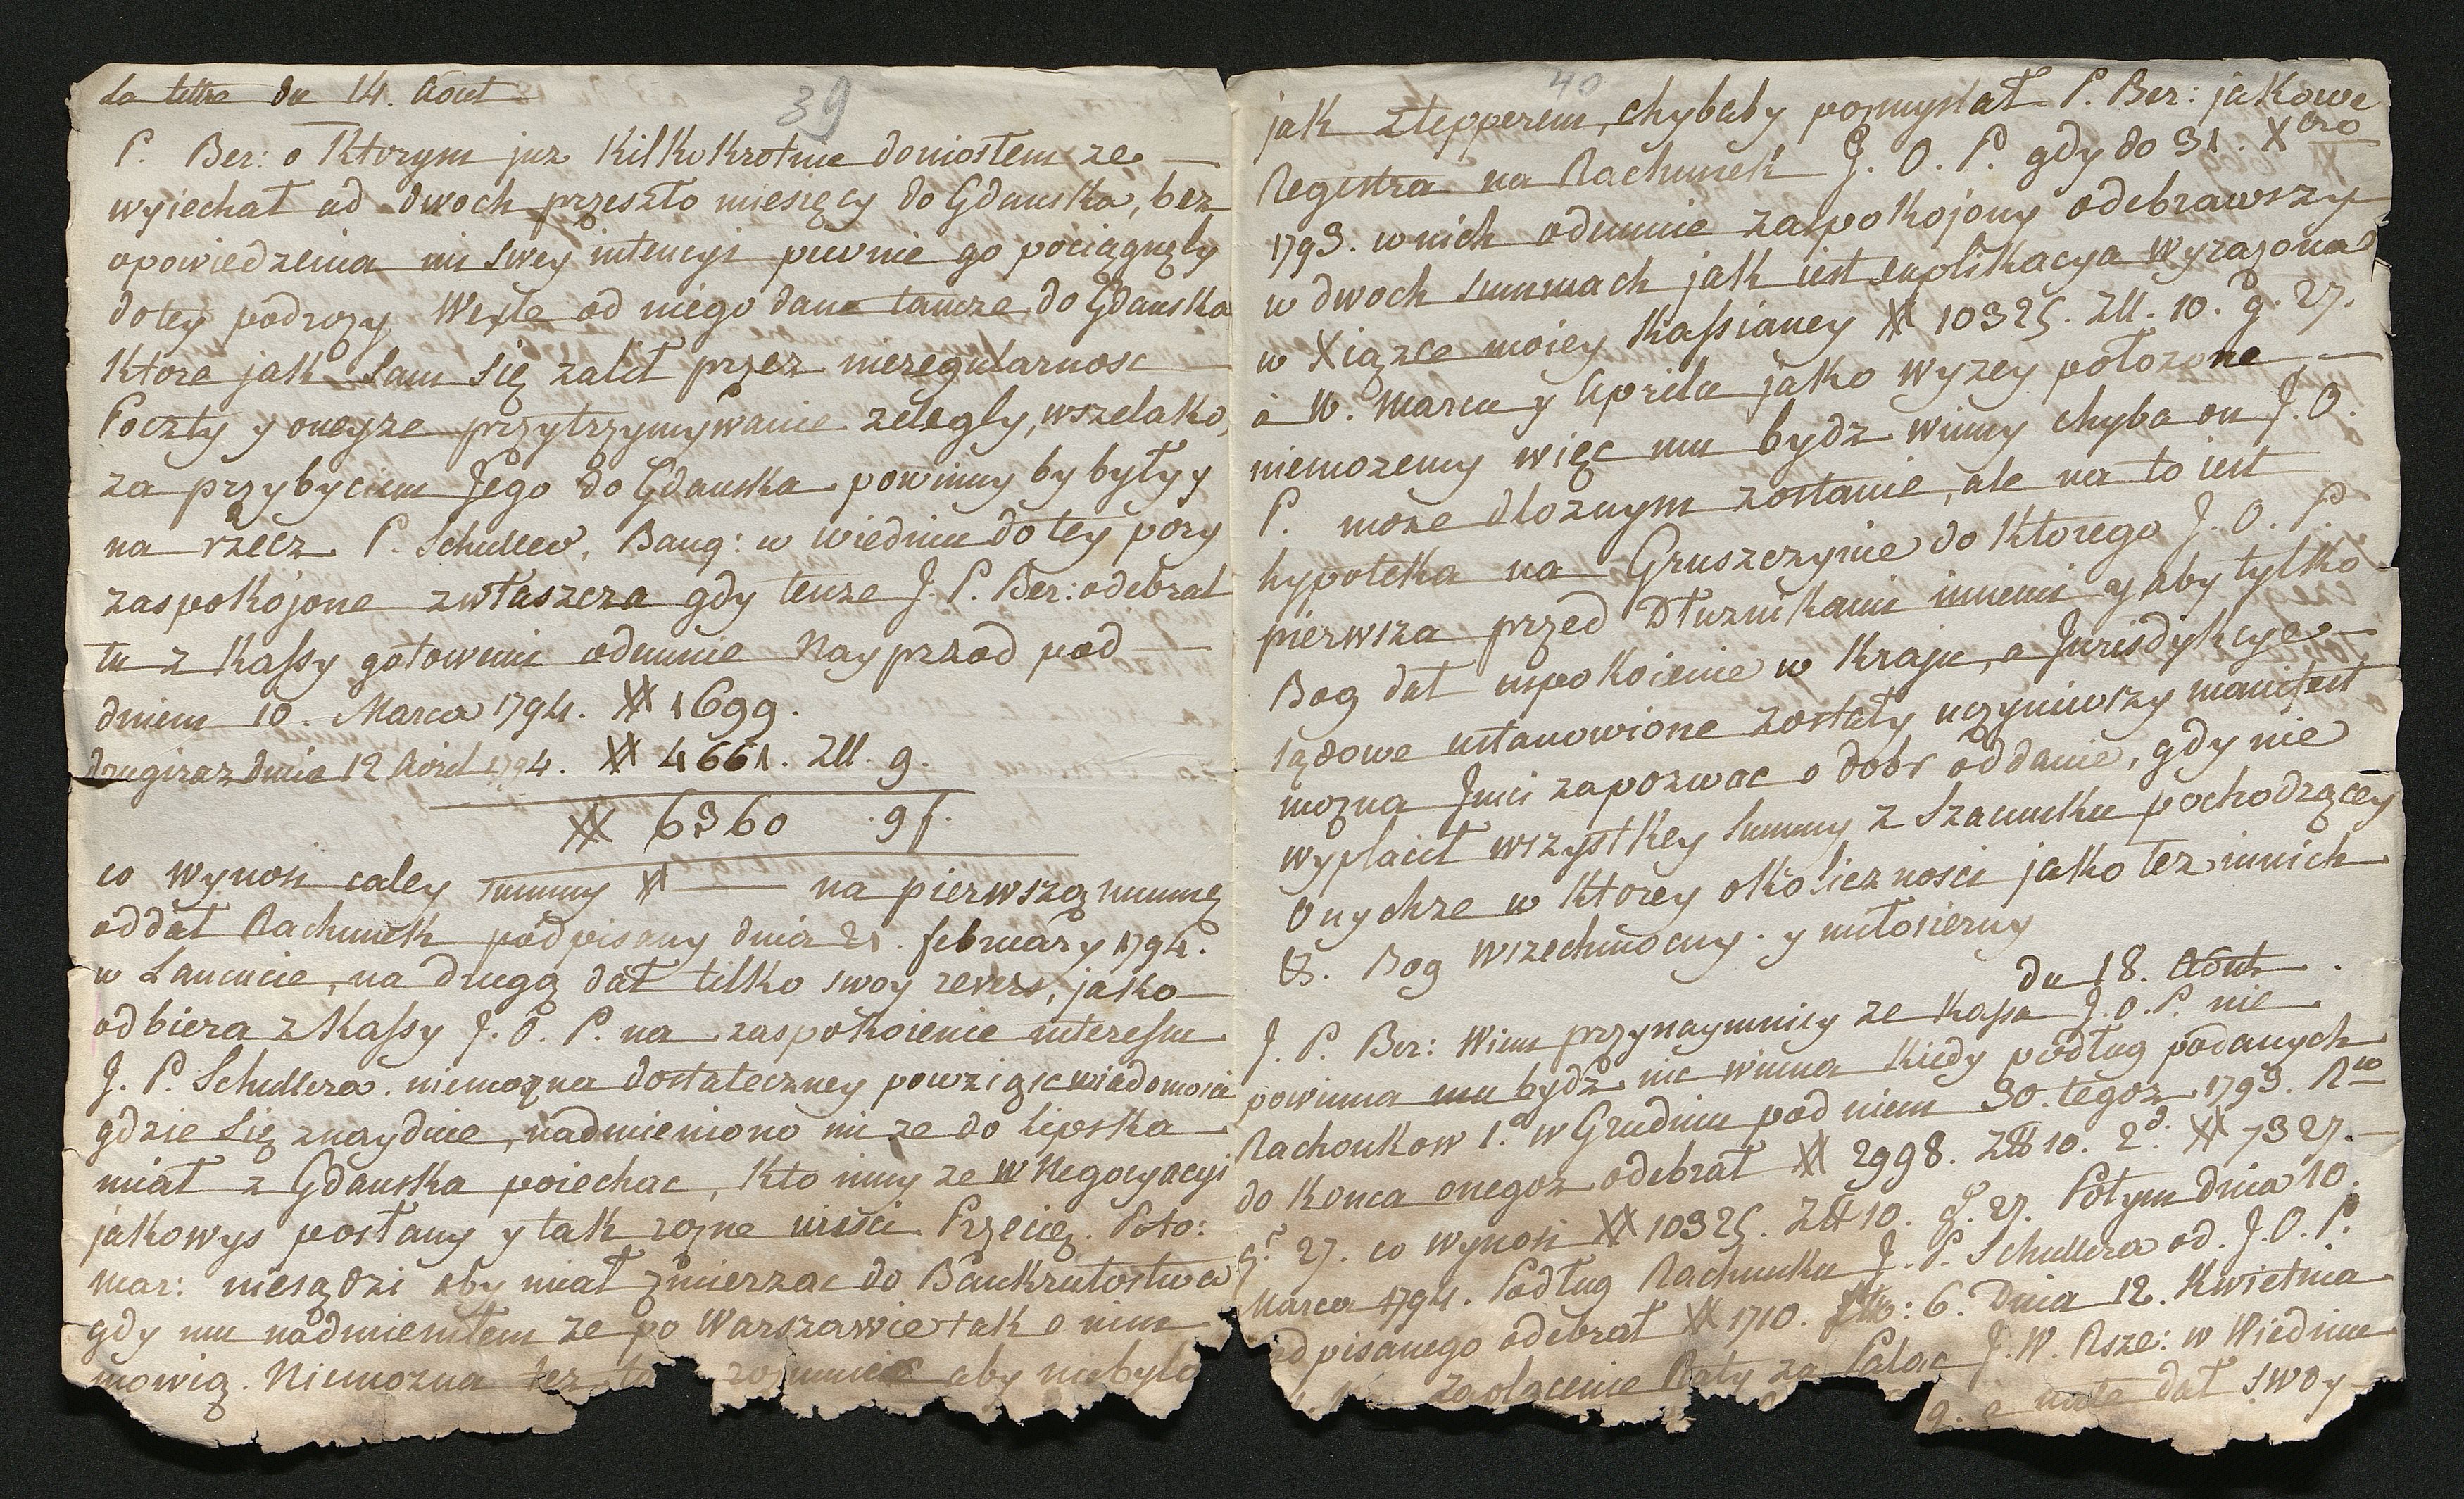 La lettre du 14. Aout
39
P. Ber: o Ktorym juz Kilkokrotnie doniosłem ze
wyiechał od dwoch przeszło miesięcy do Gdanska, bez
opowiedzenia mi swey intencyi pewnie go pociągnęły
do tey podrozy Wexle od niego dane tamze do Gdanska
Ktore jak sam się zalił przez nieregularnosc
Poczty y oneyze przytrzymywanie zaległy, wszelako,
za przybyciem Jego do Gdanska powinny by były y
na rzecz P. Schuller, Banq: w wiedniu do tey pory
zaspokojone zwłaszcza gdy tenze J. P. Ber: odebrał
tu z Kassy gotowemi odemnie Nayprzod pod
dniem 10. Marca 1794. # 1699.
drugi raz dnia 12 Avril 1794. # 4661. Zll. 9.
# 6360 . 9 f.
co wynosi całey summy # na pierwszą summę
oddał Rachunek podpisany dnia 21. february 1794.
w Lancucie, na drugą dał tilko swoy rewers, jako
odbiera z Kassy J. O. P. na zaspokoienie interessu
J. P. Schullera. niemozna dostateczney powziąsc wiadomosci
gdzie się znayduie, nadmieniono mi ze do Lipska
miał z Gdanska poiechac, Kto inny ze w Negocyacyi
jakowys posłany y tak rozne wiesci Przecież. Poto:
mar: niesądzi aby miał zmierzac do Bankrutostwa
gdy mu nadmieniłem ze po Warszawie tak o nim
mowią. Niemozna tez rozumiec aby niebyło
40
jak Ztepperem, chybaby pozmyslał P. Ber: jakowe
Regestra na Rachunek J. O. P. gdy do 31. Xbro
1793. w nich odemnie zaspokojony odebrawszy
w dwoch summach jak iest explikacya wyrazona
w Xiązce moiey Kassianey # 10325. Zll. 10. g. 27.
a w. Marcu y Aprilu jako wyzey położone
niemozemy więc mu bydz winny chyba on J. O.
P. moze dłoznym zostanie, ale na to iest
hypoteka na Gruszczynie do Ktorego J. O. P.
pierwsza przed Dłuznikami innemi y aby tylko
Bog dał uspokoienie w Kraju, a Jurisdykcye
sądowe ustanowione zostały uczyniwszy manifest
mozna Jmci zapozwac o dobr oddanie, gdy nie
wypłacił wszystkey summy z Szacunku pochodzącey
Onychze w Ktorey okolicznosci jako tez innich
&. Bog Wszechmocny. y miłosierny
du 18. Aout.
J. P. Ber: Wiem przynaymniey ze Kassa J. O. P. nie
powinna mu bydz nic winna Kiedy podług podanych
Rachonkow 1.o w Grudniu pod niem 30. tegoz 1793. Rno
do Konca onegoz odebrał # 2998. Zll 10. 2do # 7327.
g. 27. co wynosi # 10325. Zll 10. g. 27. Potym dnia 10.
Marca 1794. Podług Rachunku J. P. Schullera od. J. O. P.
podpisanego odebrał # 1710. 6. Dnia 12. Kwietnia
zapłacenie Raty za Pałac J. W. Rsze: w Wiedniu
9. a nate dał swoy